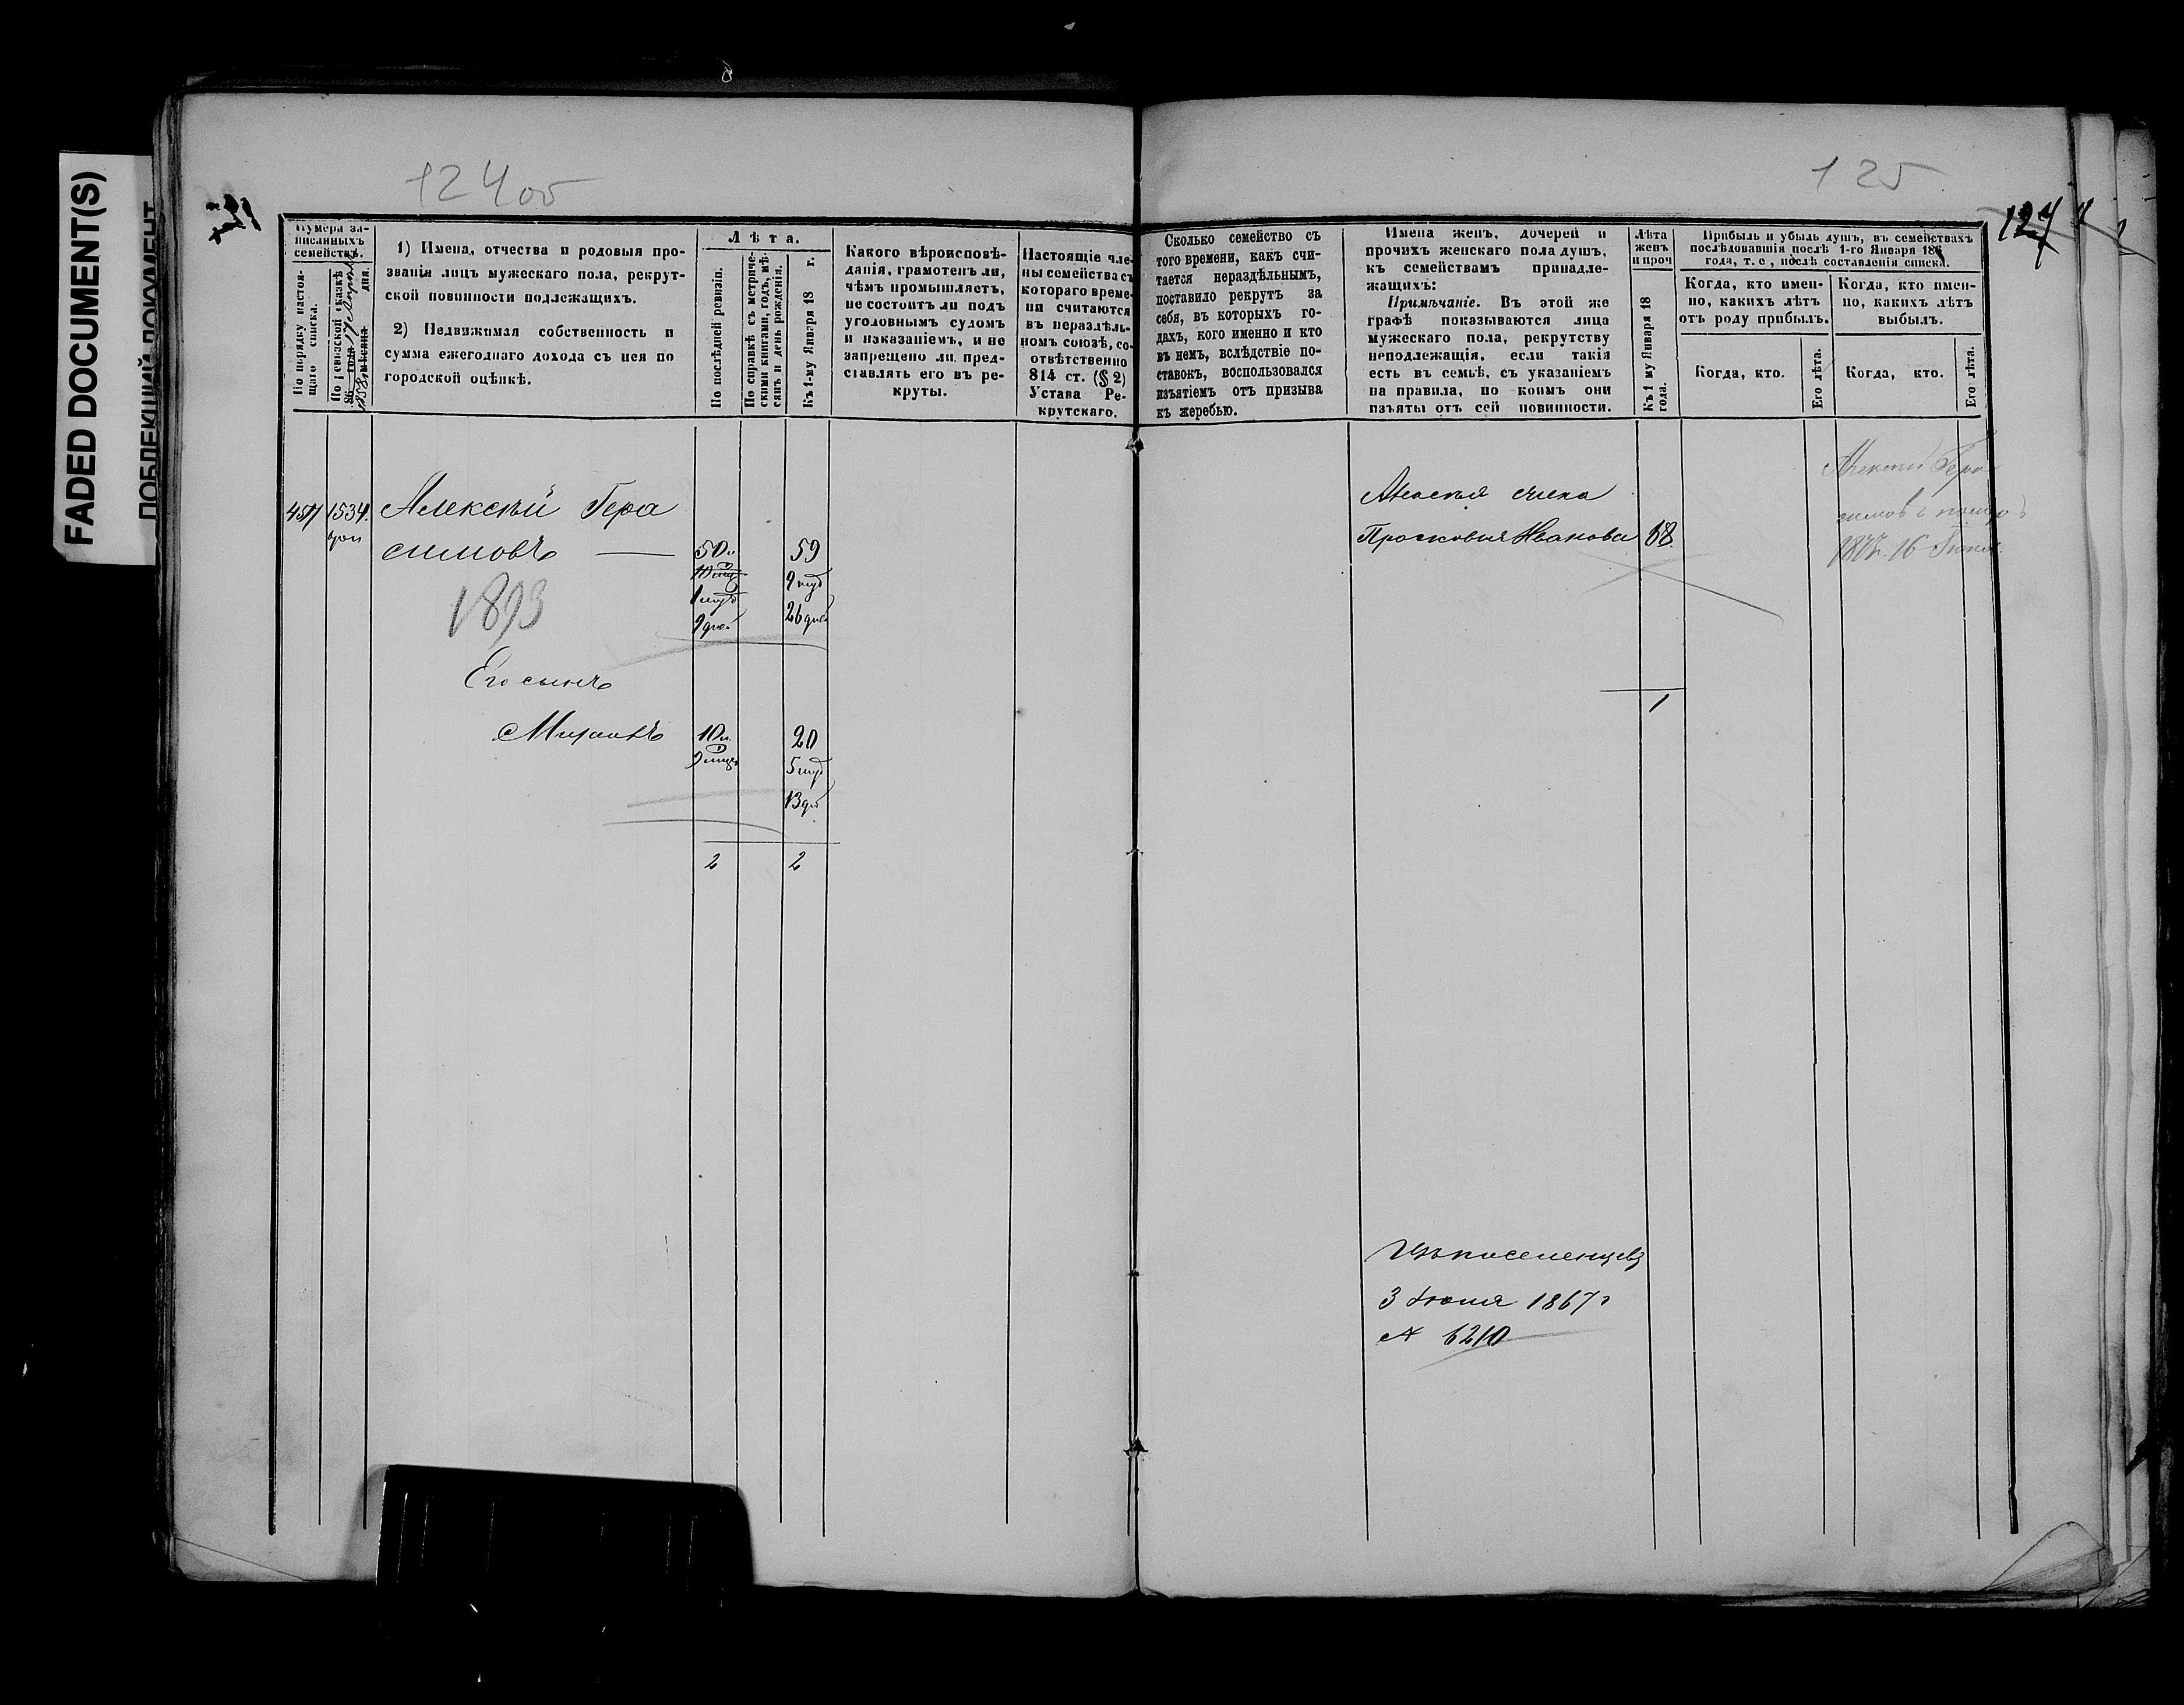 FADED DOCUMENT(S)
124об
Нумера за-
писанныхъ
семействъ.
По порядку настоя-
щаго списка.
По ревизской сказкѣ
1) Имена, отчества и родовыя про-
званія лицъ мужескаго пола, рекрут-
ской повинности подлежащихъ.
2) Недвижимая собственность и
сумма ежегоднаго дохода съ нея по
городской оцѣнкѣ.
Лѣта.
По послѣдней ревизіи.
По справкѣ съ метриче-
скими книгами, годъ, мѣ-
сяцъ и день рожденія.
Къ 1-му Января 18 г.
Какого вѣроисповѣ-
данія, грамотенъ ли,
чѣмъ промышляетъ,
не состоитъ ли подъ
уголовнымъ судомъ
и наказаніемъ, и не
запрещено ли пред-
ставлять его въ ре-
круты.
Настоящіе чле-
ны семейства съ
котораго време-
ни считаются
въ нераздѣль-
номъ союзѣ, со-
отвѣтственно
814 ст. (§ 2)
Устава Ре-
крутскаго.
1534.
Алексѣй Гера
симовъ — 50 59
1893
Его сынъ
10 20
2 2
125
127
Сколько семейство съ
того времени, какъ счи-
тается нераздѣльнымъ,
поставило рекрутъ за
себя, въ которыхъ го-
дахъ, кого именно и кто
въ немъ, вслѣдствіе по-
ставокъ, воспользовался
изъятіемъ отъ призыва
къ жеребью.
Имена женъ, дочерей и
прочихъ женскаго пола душъ,
къ семействамъ принадле-
жащихъ:
Примѣчаніе. Въ этой же
графѣ показываются лица
мужескаго пола, рекрутству
неподлежащія, если такія
есть въ семьѣ, съ указаніемъ
на правила, по коимъ они
изъяты отъ сей повинности.
Лѣта
женъ
и проч
Къ 1 му Января 18
года.
Прибыль и убыль душъ, въ семействахъ
послѣдовавшія послѣ 1-го Января 186
года, т. е., послѣ составленія списка.
Когда, кто имен-
но, какихъ лѣтъ
отъ роду прибылъ.
Когда, кто имен-
но, какихъ лѣтъ
выбылъ.
Когда, кто.
Его лѣта.
Когда, кто.
Его лѣта.
Алексѣя жена
Просковья Иванова
1
Алексѣй Гера
симовъ
16
Изъ поселенцевъ
3 Іюня 1867г
№ 6210